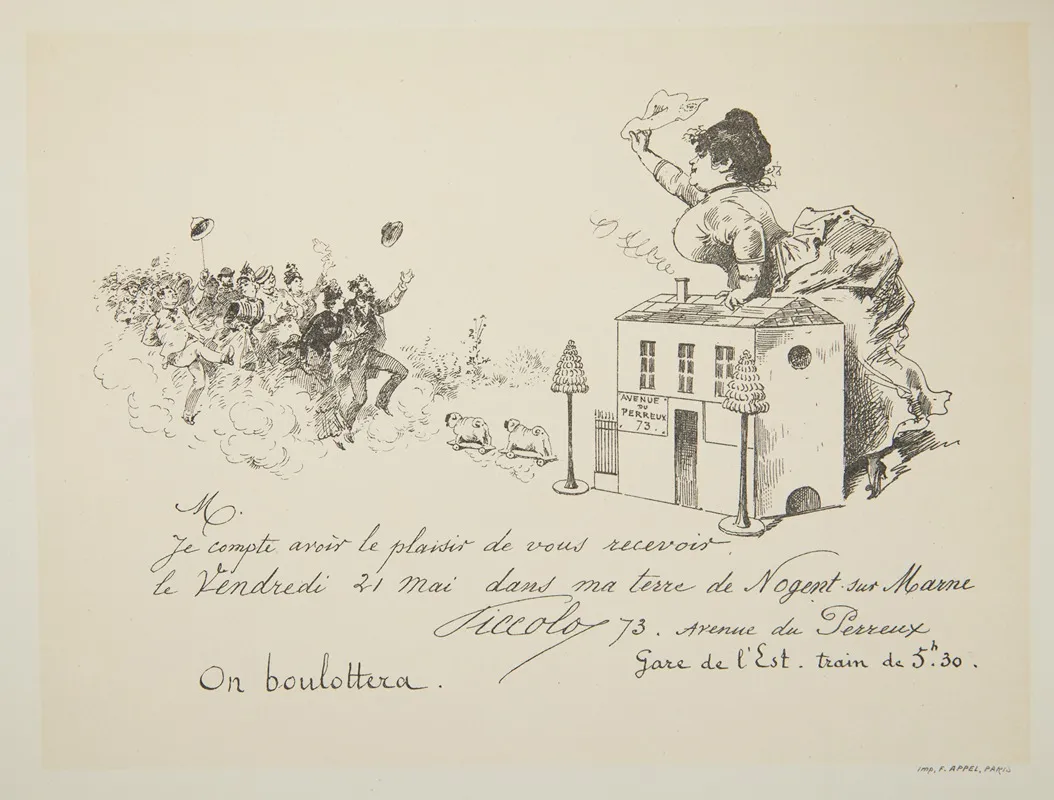 AVENUE
DU
PERREUX
73.
M.
Je compte avoir le plaisir de vous recevoir
le Vendredi 21 Mai dans ma terre de Nogent-sur Marne
Piccolo 73. Avenue du Perreux
Gare de l'Est. train de 5h.30.
On boulottera.
Imp. F. APPEL, PARIS